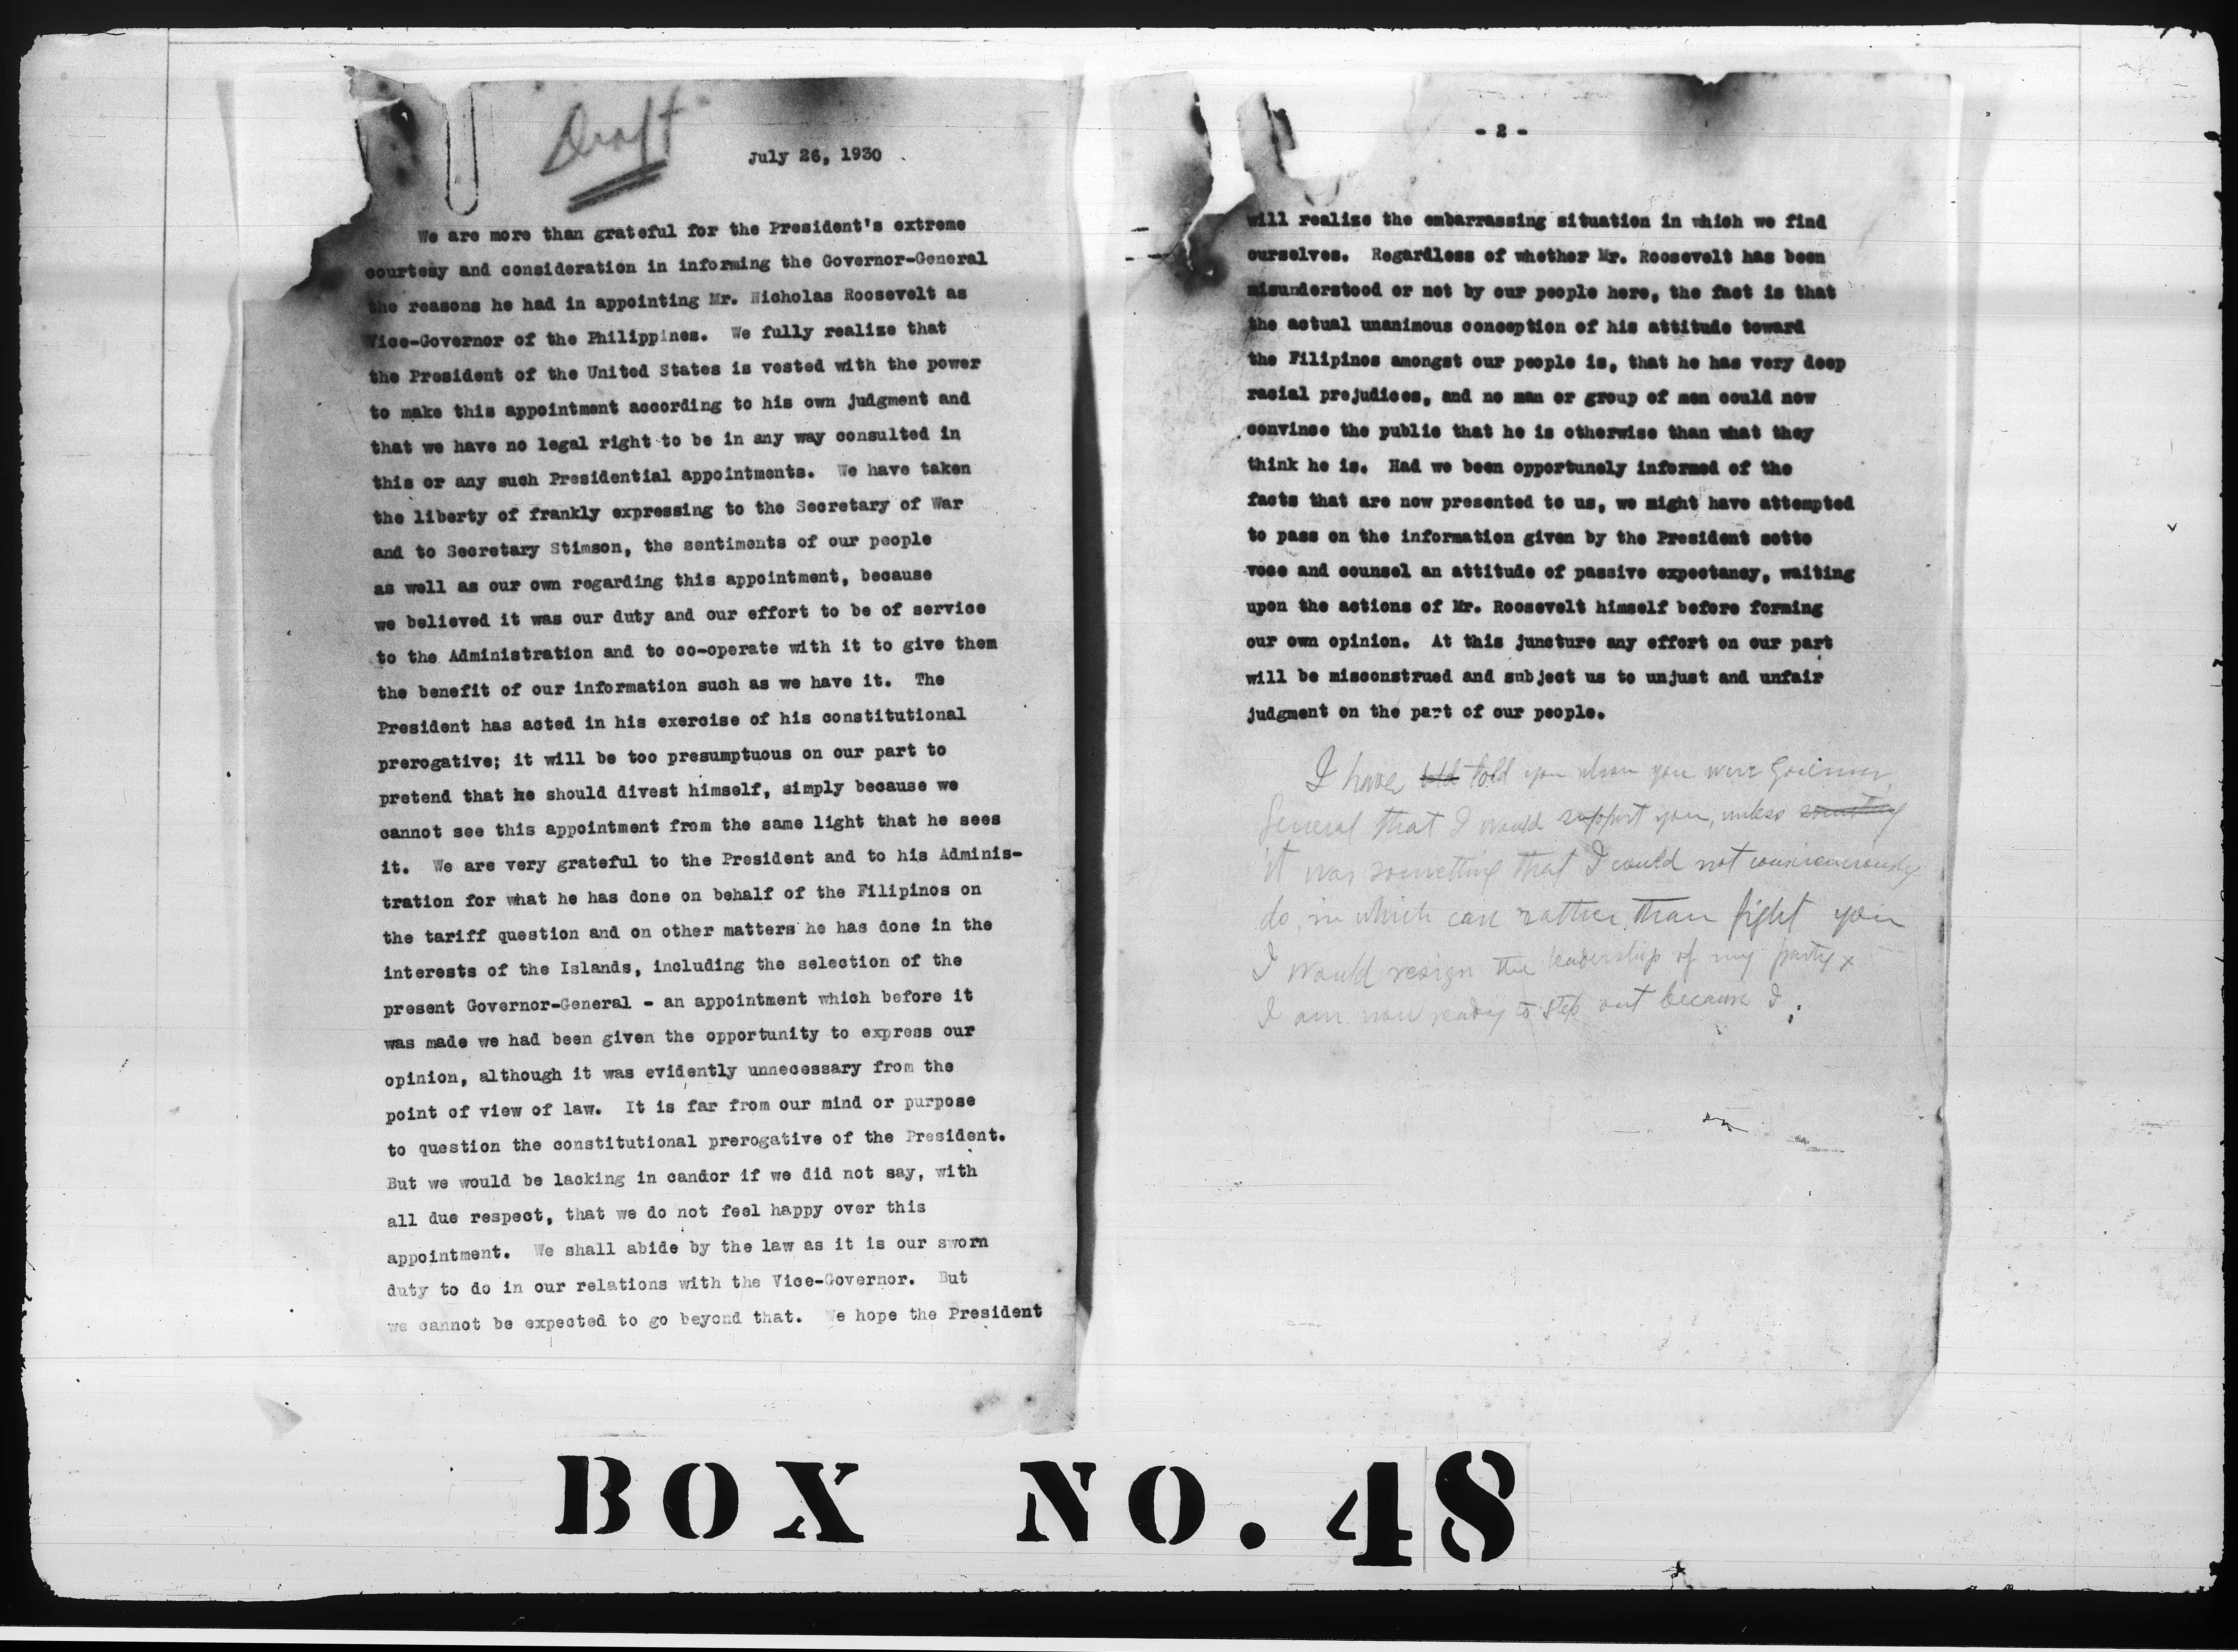 Draft
July 26, 1930
We are more than grateful for the President's extreme
courtesy and consideration in informing the Governor-General
the reasons he had in appointing Mr. Nicholas Roosevelt as
Vice-Governor of the Philippines. We fully realize that
the President of the United States is vested with the power
to make this appointment according to his own judgment and
that we have no legal right to be in any way consulted in
this or any such Presidential appointments. We have taken
the liberty of frankly expressing to the Secretary of War
and to Secretary Stimson, the sentiments of our people
as well as our own regarding this appointment, because
we believed it was our duty and our effort to be of service
to the Administration and to co-operate with it to give them
the benefit of our information such as we have it. The
President has acted in his exercise of his constitutional
prerogative; it will be too presumptuous on our part to
pretend that he should divest himself, simply because we
cannot see this appointment from the same light that he sees
it. We are very grateful to the President and to his Adminis-
tration for what he has done on behalf of the Filipinos on
the tariff question and on other matters he has done in the
interests of the Islands, including the selection of the
present Governor-General - an appointment which before it
was made we had been given the opportunity to express our
opinion, although it was evidently unnecessary from the
point of view of law. It is far from our mind or purpose
to question the constitutional prerogative of the President.
But we would be lacking in candor if we did not say, with
all due respect, that we do not feel happy over this
appointment. We shall abide by the law as it is our sworn
duty to do in our relations with the Vice-Governor. But
we cannot be expected to go beyond that. We hope the President
- 2 -
will realize the embarrassing situation in which we find
ourselves. Regardless of whether Mr. Roosevelt has been
misunderstood or not by our people here, the fact is that
the actual unanimous conception of his attitude toward
the Filipinos amongst our people is, that he has very deep
racial prejudices, and no man or group of men could now
convince the public that he is otherwise than what they
think he is. Had we been opportunely informed of the
facts that are now presented to us, we might have attempted
to pass on the information given by the President sotto
voce and counsel an attitude of passive expectancy, waiting
upon the actions of Mr. Roosevelt himself before forming
our own opinion. At this juncture any effort on our part
will be misconstrued and subject us to unjust and unfair
judgment on the part of our people.
I have told told you when you were Governor
General that I would support you, unless something
it was something that I could not conscienciously
do, in which case rather than fight you
I would resign the leadership of my party x
I am now ready to step out because I
BOX NO. 48